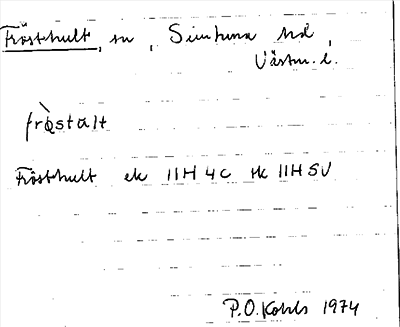 Frösthult, sn, Simtuna hd,
Västm. l.
frø̀stalt
Frösthult ek 11H 4c tk 11H SV
P.O. Kohls 1974